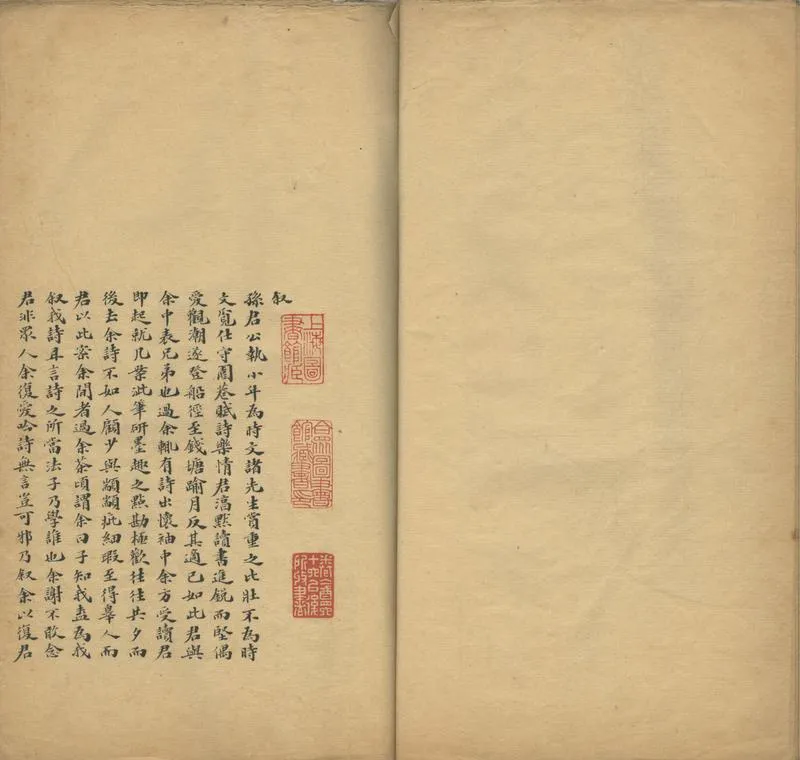 叙
孫君公執小年為時文諸先生賞重之比壯不為時
文寬仕守園巷賦詩樂情君濇默讀書進銳而堅偶
愛觀潮遂登船徑至錢塘踰月反其適已如此君與
余中表兄弟也過余輒有詩出懷袖中余方受讀君
即起就几案泚筆研墨趣之點勘極歡往往共夕而
後去余詩不如人顧少與顓顓疵細瑕至得辠人而
君以此案余間者過余茶頃謂余曰子知我盍為我
叙我詩耳言詩之所當法子乃學誰也余謝不敢念
君非眾人余復愛吟詩無言豈可邪乃叙余以復君
上海圖
書館臧
合眾圖書
館藏書印